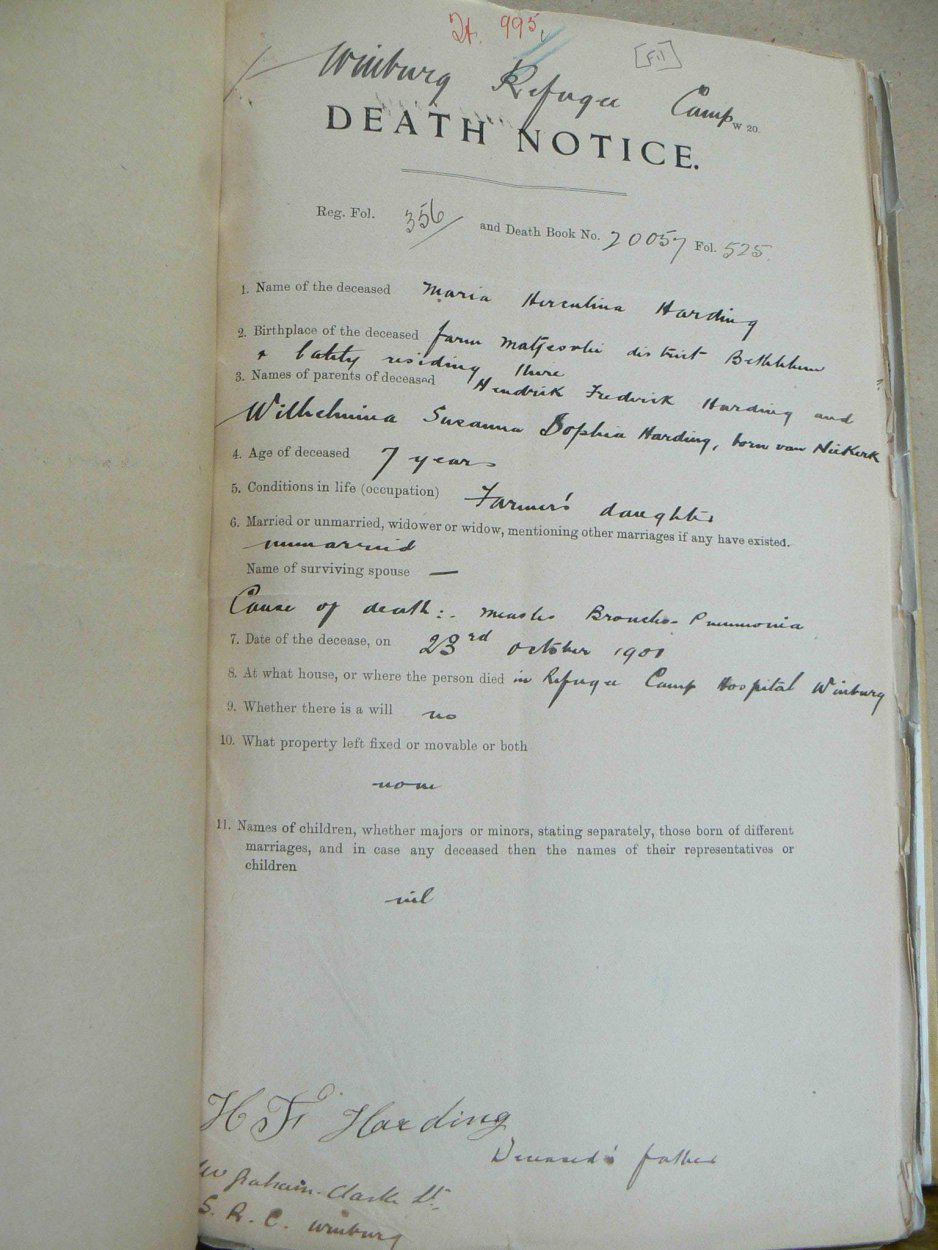 995
Fil
Winburg Refugee Camp
W 20.
DEATH NOTICE.
Reg. Fol. 356 and Death Book No. 20057 Fol. 525.
1. Name of the deceased Maria Herculina Harding
2. Birthplace of the deceased farm district Bethlehem
& lately residing there
3. Names of parents of deceased Hendrik Fredrick Harding and
Wilhelmina Susanna Sophia Harding, born van Niekerk
4. Age of deceased 7 years
5. Conditions in life (occupation) Farmer's daughter
6. Married or unmarried, widower or widow, mentioning other marriages if any have existed.
unmarried
Name of surviving spouse —
Cause of death:- Measles Broncho-Pneumonia
7. Date of the decease, on 23rd October 1901
8. At what house, or where the person died in Refugee Camp Hospital Winburg
9. Whether there is a will no
10. What property left fixed or movable or both
none
11. Names of children, whether majors or minors, stating separately, those born of different
marriages, and in case any deceased then the names of their representatives or
children
nil
H F Harding
Deceased's father
Graham-Clarke Lt.
S. R. C. Winburg